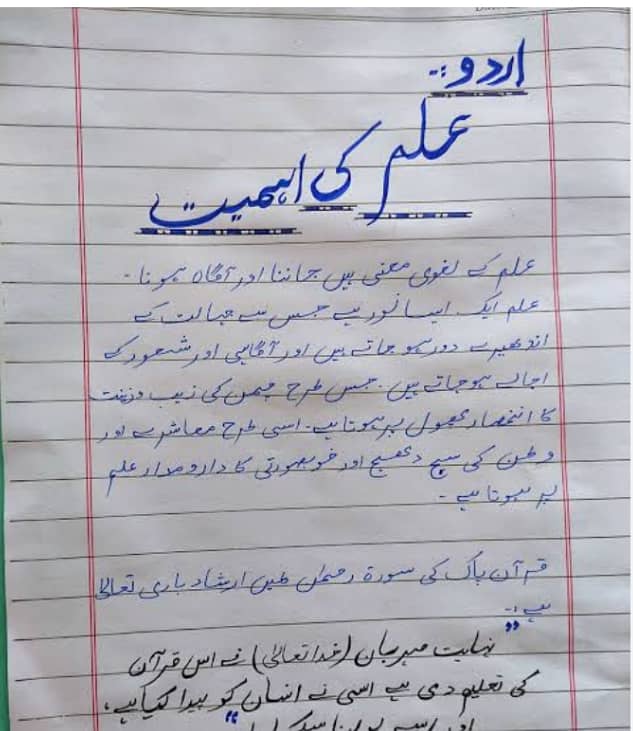 اردو:-
علم
کی اہمیت
علم کے لغوی معنی ہیں جاننا اور آگاہ ہونا -
علم ایک ایسا نور ہے جس سے جہالت کے
اندھیرے دور ہو جاتے ہیں اور آگاہی اور شعور کے
اجالے ہو جاتے ہیں . جس طرح چمن کی زیب و زینت
کا انحصار پھول پر ہوتا ہے . اسی طرح معاشرے اور
وطن کی سج دھج اور خوبصورتی کا دارومدار علم
پر ہوتا ہے -
قرآن پاک کی سورۃ رحمٰن میں ارشاد باری تعالیٰ
ہے :-
"نہایت مہربان (خدا تعالیٰ) نے اس قرآن
کی تعلیم دی ہے اسی نے انسان کو پیدا کیا ہے ،
اور اسے بولنا سکھایا"